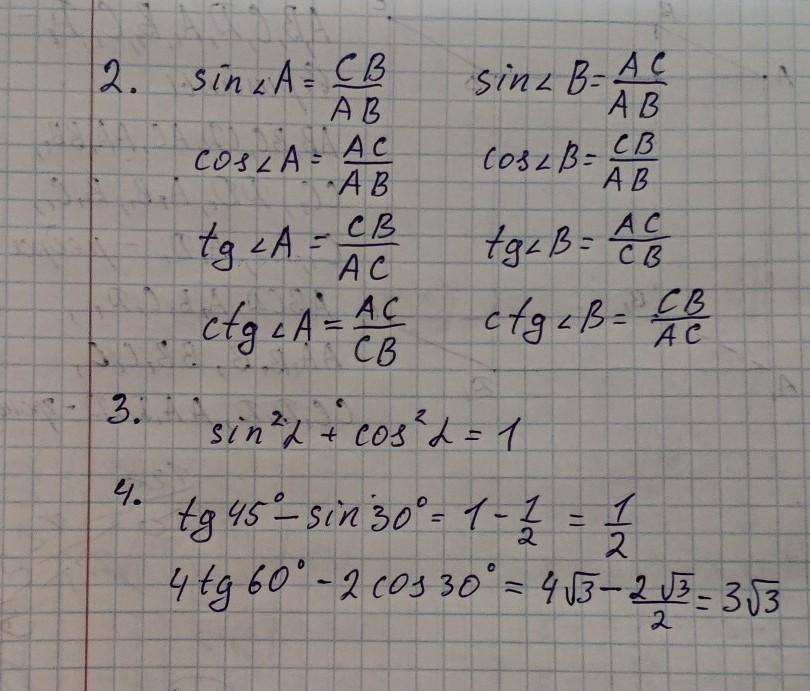 2. sin∠A = CB/AB sin∠B = AC/AB
cos∠A = AC/AB cos∠B = CB/AB
tg∠A = CB/AC tg∠B = AC/CB
ctg∠A = AC/CB ctg∠B = CB/AC
3. sin²α + cos²α = 1
4. tg 45° - sin 30° = 1 - 1/2 = 1/2
4 tg 60° - 2 cos 30° = 4√3 - 2√3/2 = 3√3